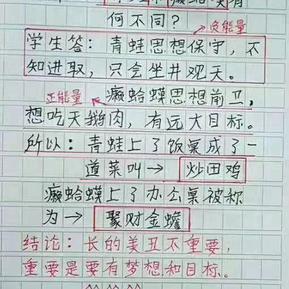 何不同？
负能量
学生答：青蛙思想保守，不
知进取，只会坐井观天。
正能量
癞蛤蟆思想前卫，
想吃天鹅肉，有远大目标。
所以：青蛙上了饭桌成了一
道菜叫→炒田鸡
癞蛤蟆上了办公桌被称
为→聚财金蟾
结论：长的美丑不重要，
重要是要有梦想和目标。